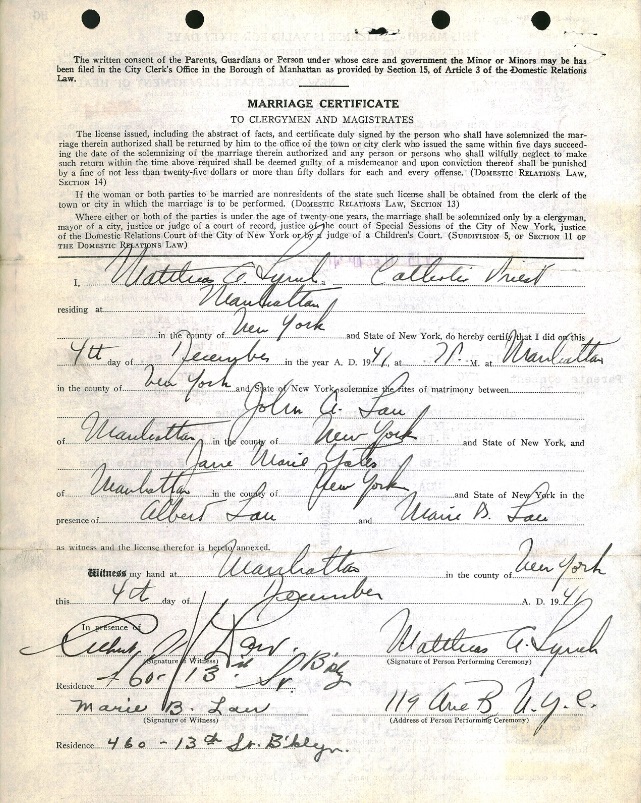 The written consent of the Parents, Guardians or Person under whose care and government the Minor or Minors may be has
been filed in the City Clerk's Office in the Borough of Manhattan as provided by Section 15, of Article 3 of the Domestic Relations
Law.
MARRIAGE CERTIFICATE
TO CLERGYMEN AND MAGISTRATES
The license issued, including the abstract of facts, and certificate duly signed by the person who shall have solemnized the mar-
riage therein authorized shall be returned by him to the office of the town or city clerk who issued the same within five days succeed-
ing the date of the solemnizing of the marriage therein authorized and any person or persons who shall wilfully neglect to make
such return within the time above required shall be deemed guilty of a misdemeanor and upon conviction thereof shall be punished
by a fine of not less than twenty-five dollars or more than fifty dollars for each and every offense. (DOMESTIC RELATIONS LAW,
SECTION 14)
If the woman or both parties to be married are nonresidents of the state such license shall be obtained from the clerk of the
town or city in which the marriage is to be performed. (DOMESTIC RELATIONS LAW, SECTION 13)
Where either or both of the parties is under the age of twenty-one years, the marriage shall be solemnized only by a clergyman,
mayor of a city, justice or judge of a court of record, justice of the court of Special Sessions of the City of New York, justice
of the Domestic Relations Court of the City of New York or by a judge of a Children's Court. (SUBDIVISION 5, OF SECTION 11 OF
THE DOMESTIC RELATIONS LAW)
I, Matthew A. Lynch Catholic Priest
residing at Manhattan
in the county of New York and State of New York, do hereby certify that I did on this
4th day of December in the year A. D. 1941, at M. at Manhattan
in the county of New York and State of New York, solemnize the rites of matrimony between
John A. Lau
of Manhattan in the county of New York and State of New York, and
Jane Marie Yates
of Manhattan in the county of New York and State of New York in the
presence of Albert Lau and Marie B. Lau
as witness and the license therefor is hereto annexed.
Witness my hand at Manhattan in the county of New York
this 4th day of December A. D. 1941
In presence of
Albert Lau Matthew A. Lynch
(Signature of Witness) (Signature of Person Performing Ceremony)
Residence 460-13th St. B'klyn
Marie B. Lau 119 Ave B N.Y.C.
(Signature of Witness) (Address of Person Performing Ceremony)
Residence 460 - 13th St. B'klyn.